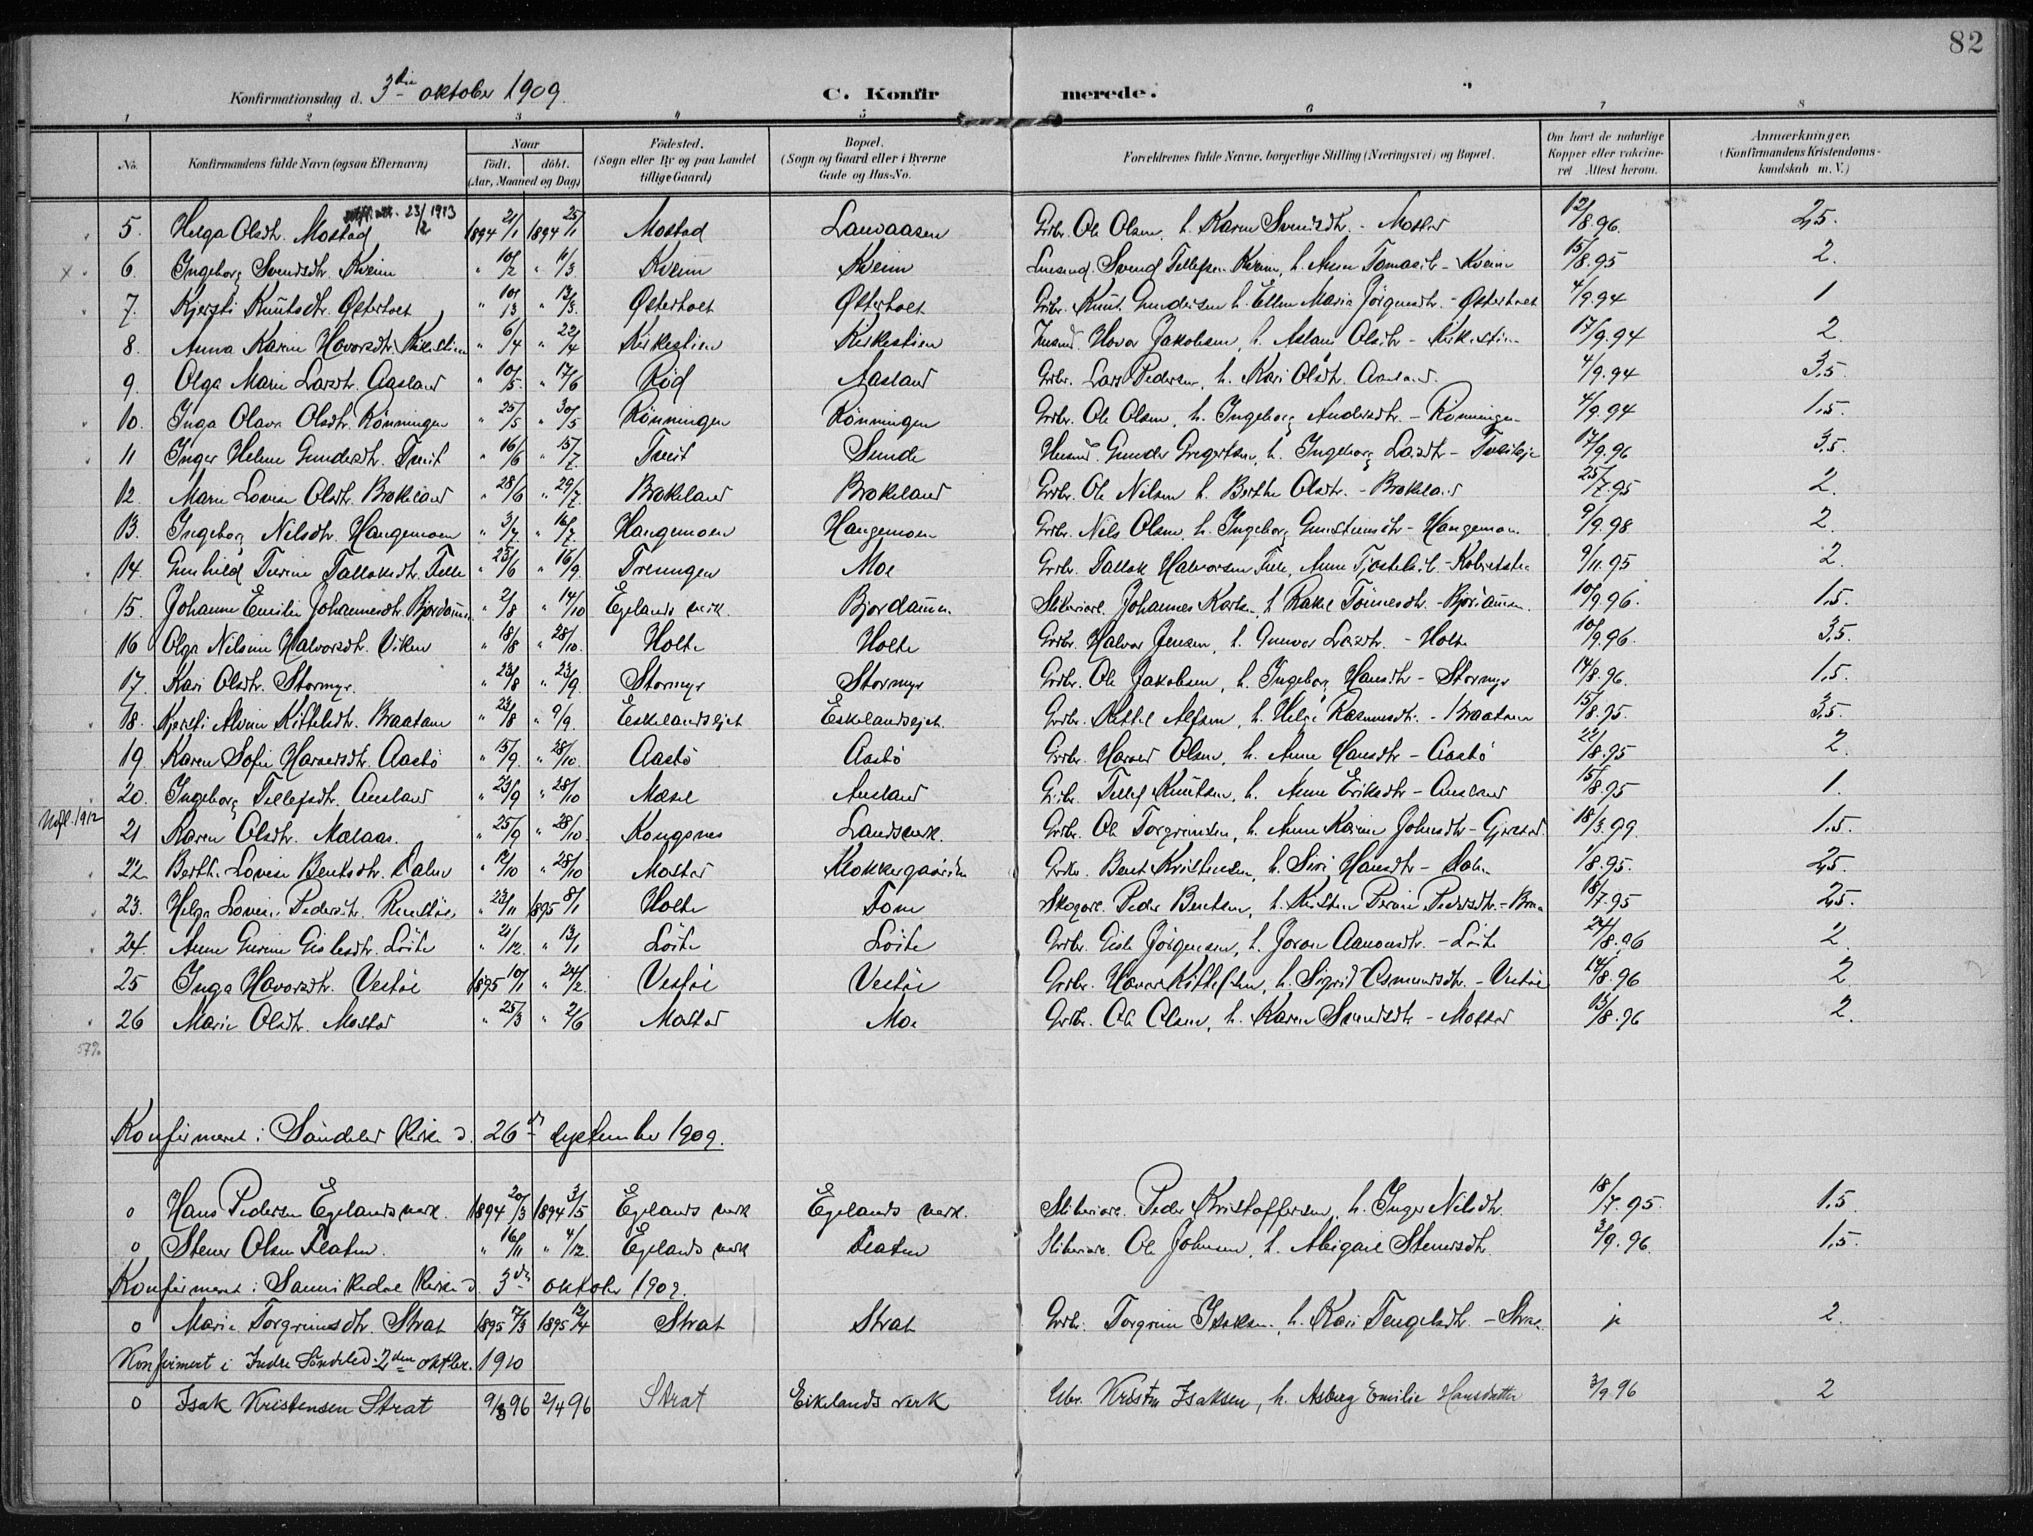 82
Konfirmationsdag d. 3die oktober 1909. C. Konfirmerede.
1 2 3 4 5 6 7 8
No. Konfirmandens fulde Navn (ogsaa Efternavn) Naar født. døbt. (Aar, Maaned og Dag) Födested. (Sogn eller By og paa Landet tillige Gaard) Bopæl. (Sogn og Gaard eller i Byerne Gade og Hus-No. Forældrenes fulde Navne, borgerlige Stilling (Næringsvei) og Bopæl. Om havt de naturlige Kopper eller vakcineret Attest herom. Anmærkninger. (Konfirmandens Kristendomskundskab m. V.)
5. Helga Olsdtr. Mostad 23/2 1913 1894 21/1 1894 25/1 Mostad Lauvaasen Grdbr. Ole Olsen, h. Karen Svendsdtr. - Mostad 12/8.96. 2,5.
6. Ingeborg Svendsdtr. Kveim " 10/2 " 11/3 Kveim Kveim Svend Tellefsen Kveim, h. Anne - Kveim 15/8.95 2.
7. Kjersti Knutsdtr. Østerholt " " 13/3. Østerholt Østerholt Grdbr. Knut Gundersen h. Ellen Maria Jörgensdtr. - Østerholt 4/9.94 1
8. Anna Karin Hovorsdtr. Kirkestien " 6/4 " 22/4 Kirkestien Kirkestien Husmd. Hovor Jakobsen, h. Aslaug Olsdtr - Kirkestien 17/9.94 2.
9. Olga Marie Larsdtr. Aasland " 10/5. " 17/6 Röd Aasland Grdbr. Lars Pedersen, h. Kari Olsdtr. Aasland. 4/9.94 3,5.
10. Inga Olava Olsdtr. Rönningen " 25/5 " 30/5 Rönningen Rönningen Grdbr. Ole Olsen, h. Ingeborg Andersdtr. - Rönningen 4/9.94 1,5.
11 Inger Helene Gundersdtr. Tveit " 16/6 " 15/7. Tveit Sunde Husmd. Gunder Gregertsen, h. Ingeborg Larsdtr - 17/9.96 3,5.
12. Marie Lovise Olsdtr. Brokeland " 28/6 " 29/7. Brokeland Brokeland Grdbr. Ole Nilsen h. Berthe Olsdtr. - Brokeland 25/7.95 2.
13. Ingeborg Nilsdtr. Haugemoen " 3/7 " 16/7. Haugemoen Haugemoen Grdbr. Nils Olsen, h. Ingeborg Gunsteinsdtr - Haugemoen 9/9.98 2.
14. Gunhild Tallaksdtr. Felle " 25/6 " 16/9. Treungen Moe Grdbr. Tallak Halvorsen Felle, Anne 9/11.95 2.
15. Johanne Emilie Johannesdtr. Bjordammen " 2/8 " 14/10 Egelands verk. Bjordammen Sliberiarb. Johannes h. Rakel Tönnesdtr. - Bjordammen. 10/9.96. 1,5.
16 Olga Nilsine Halvorsdtr. Viken " 18/8 " 28/10. Holte Holte Grdbr. Halvor Jensen, h. Gunvor Larsdtr. - Holte 10/9.96. 3,5.
17. Kari Olsdtr. Stormyr. " 23/8 " 23/9. Stormyr Stormyr Grdbr. Ole Jakobsen, h. Ingeborg Hansdtr - Stormyr 14/8.96. 1,5.
18. Kjersti Alvine Kittelsdtr. Braatane " 23/8 " 9/9. Eskelandsejet Eskelandsejet. Grdbr. Kittel Alfsen, h. Helge Rasmusdtr. - Braatane 15/8.95. 3,5.
19. Karen Sofie Haraldsdtr. Aastö " 15/9. " 28/10. Aastö Aastö Grdbr. Harald Olsen, h. Anne Hansdtr - Aastö 22/8.95 2.
20. Ingeborg Tellefsdtr. Ausland " 23/9 " 28/10 Mæsel Ausland Grdbr. Tellef Knutsen, h. Anne Eriksdtr - Ausland 15/8.95 1.
Udfl. 1912 21 Karen Olsdtr. Mælaas. " 25/9 " 28/10. Kongsnes Landsverk. Grdbr. Ole Torgrimsen, h. Anne Karine Johnsdtr - Gjerstad 18/3.99. 1,5.
22. Berthe Lovise Bentsdtr. Dalen " 12/10 " 28/10 Mostad Klokkergaarden Grdbr. Bent Kristensen, h. Siri Hansdtr - Dalen 1/8.95. 2,5.
23. Helga Lovise Pedersdtr. " 23/11 1895 8/1 Holte Fone Skogarb. Peder Bentsen, h. Pedersdtr. 18/7.95 2,5.
24. Anne Gurine Gislesdtr. Löite " 21/12. " 13/1 Löite Löite Grdbr. Gisle Jörgensen, h. Joron Aanonsdtr. - Löite 24/8.96 2.
25 Inga Hovorsdtr. Vestöl 1895 10/1 " 24/2. Vestöl Vestöl Grdbr. Hovor Kittelsen, h. Sigrid Osmundsdtr. - Vestöl 14/8.96 2.
26 Marie Olsdtr. Mostad " 25/3 " 2/6 Mostad Moe Grdbr. Ole Olsen, h. Karen Svendsdtr - Mostad 13/8.96 2.
Konfirmeret i Söndeled Kirke d. 26de september 1909.
o Hans Pedersen Egelandsverk. 1894 20/3 1894 3/5 Egelands verk Egelands verk. Sliberiarb. Peder Kristoffersen, h. Inger Nilsdtr. 18/7.95. 1,5.
o Stener Olsen Flaten. " 16/11 " 4/12. Egelands verk Flaten Sliberiarb. Ole Johnsen, h. Abigael Stenersdtr. 3/9.96. 1,5.
Konfirmeret i Sannikedal Kirke d. 3de oktober 1909.
o Marie Torgrimsdtr. Strat 1895 17/3 1895 12/4 Strat Strat Grdbr. Torgrim Isaksen, h. Kari Tengelsdtr. - Strat. ja 2.
Konfirmert i Indre Söndeled 2den oktbr. 1910
o Isak Kristensen Strat 9/3 96 2/4 96 Strat Eikelands verk Kristen Isaksen, h. Asberg Emilie Hansdatter 3/9.96 2